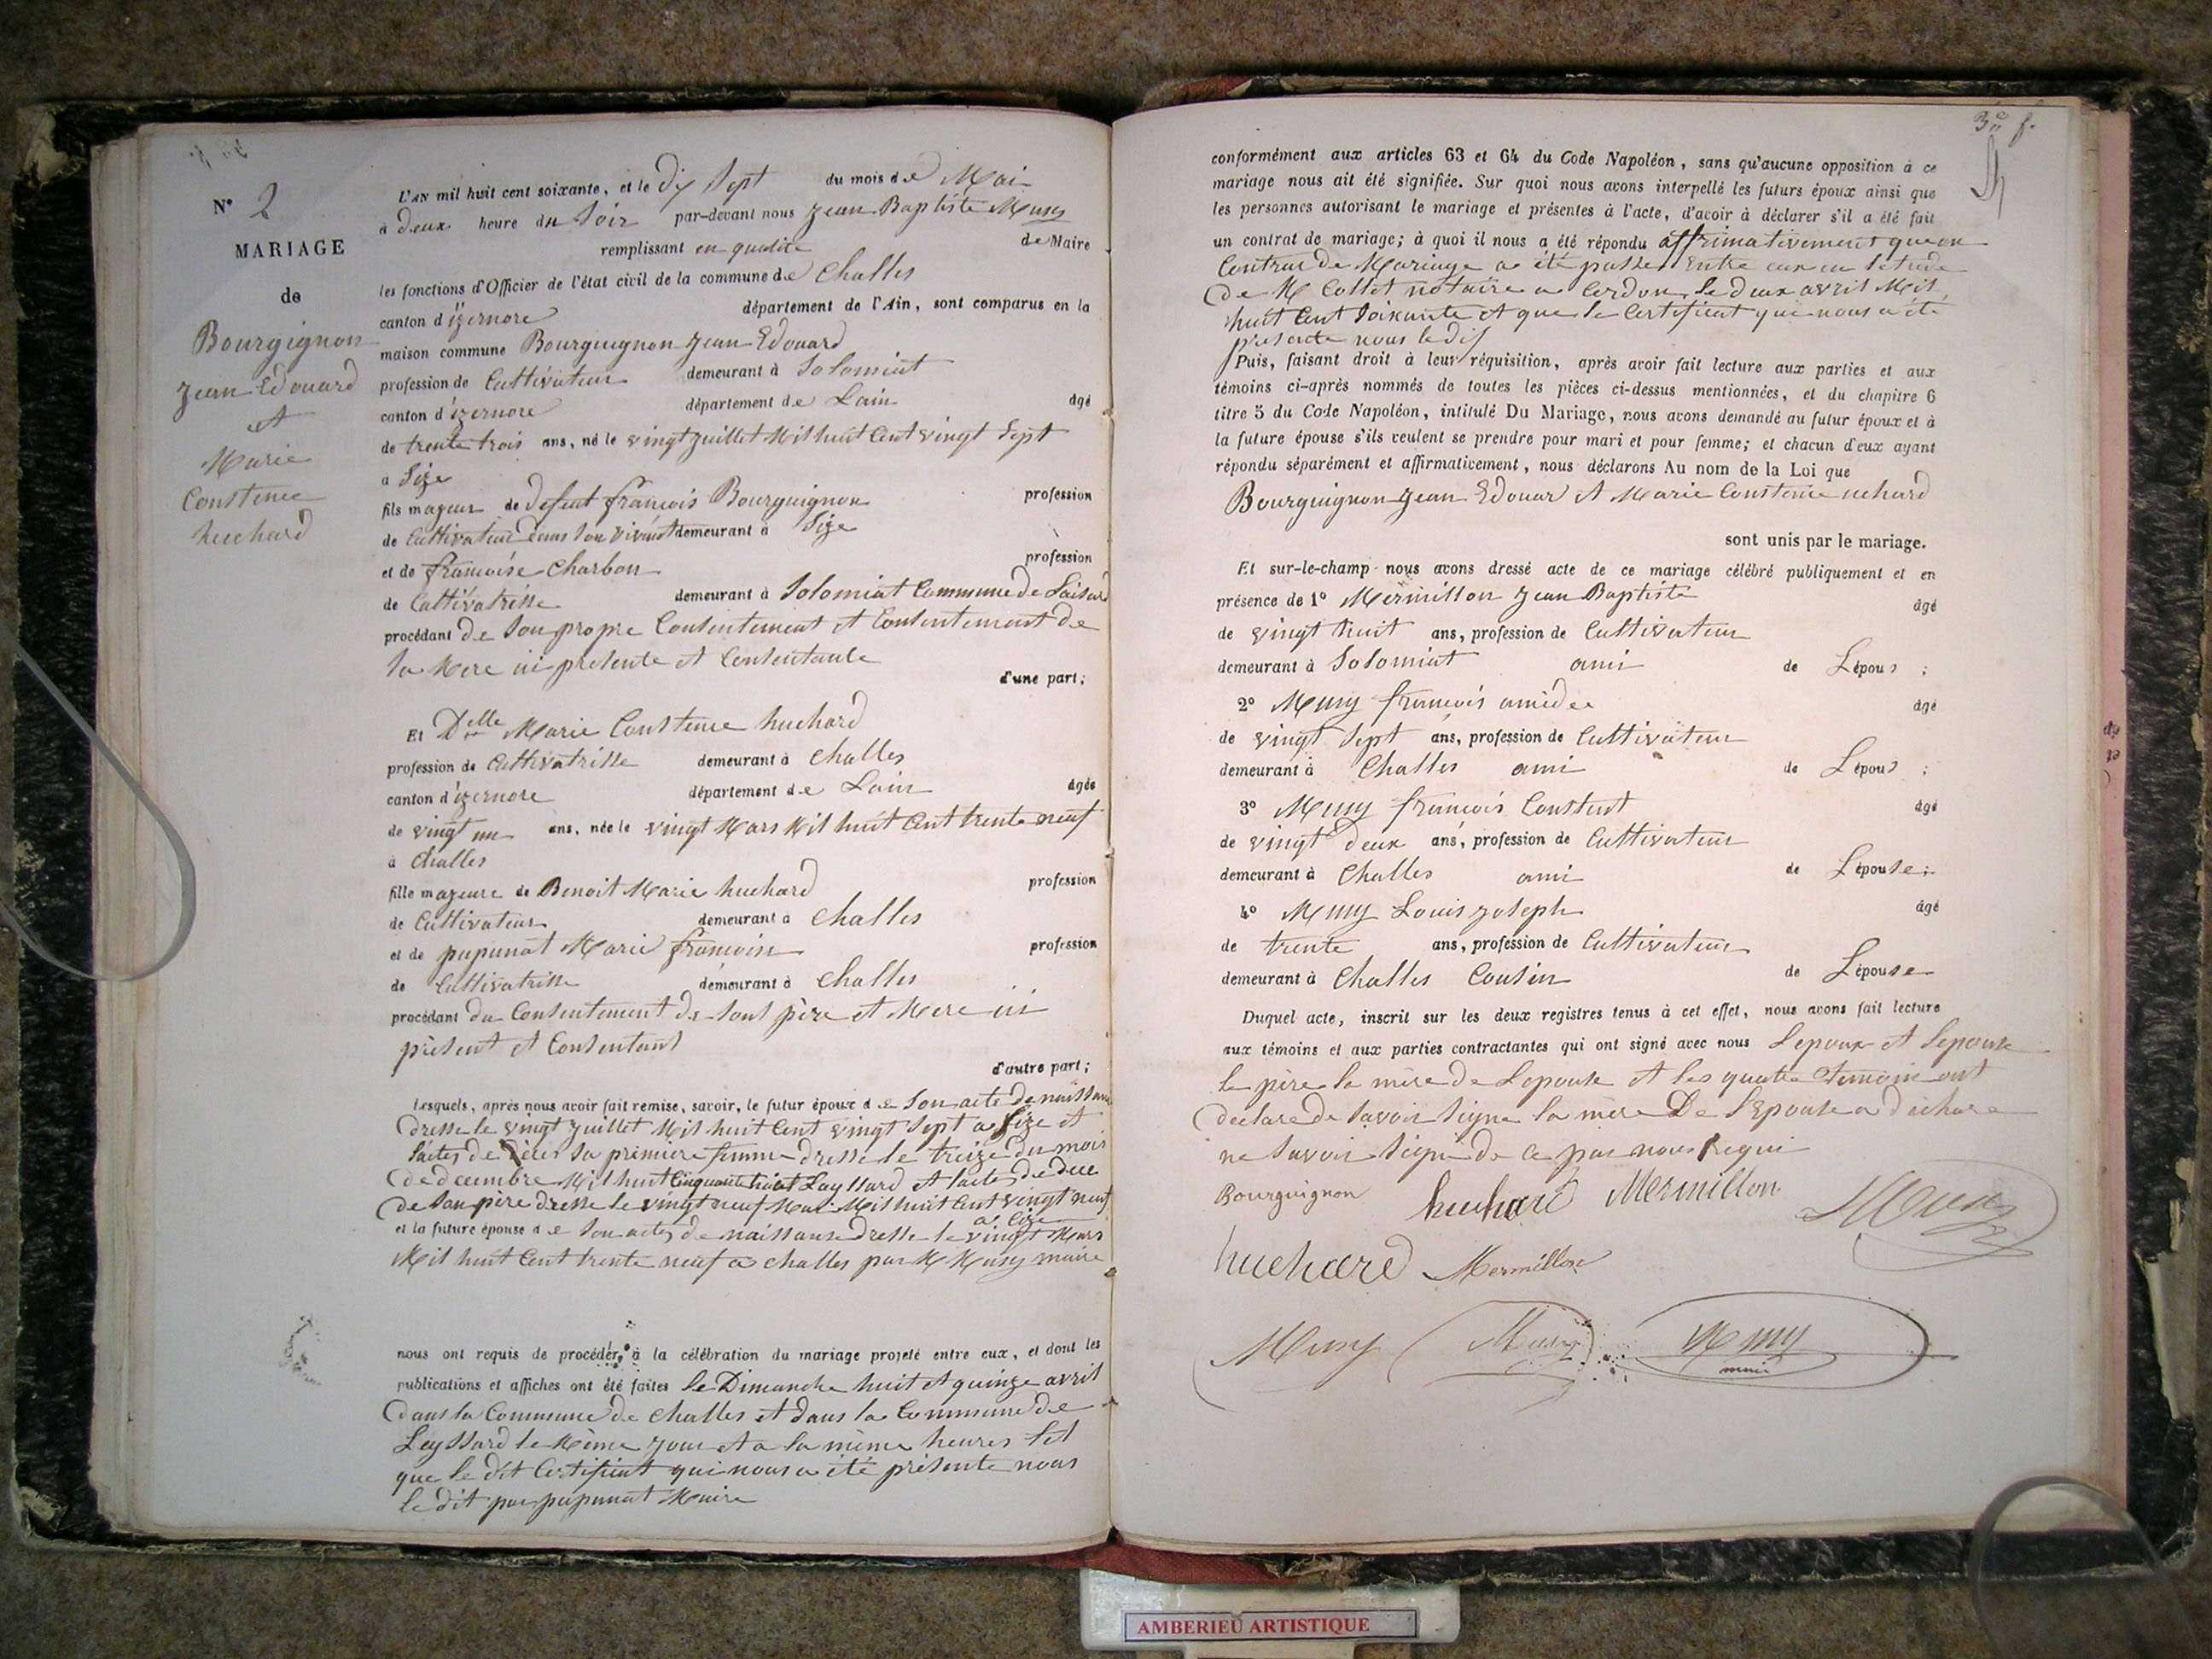 N° 2
MARIAGE
de
Bourgignon
Jean Edouard
et
Marie
Constence
huchard
L'AN mil huit cent soixante, et le dix sept du mois de Mai
à deux heure du Soir par-devant nous Jean Baptiste Musy
remplissant en qualité de Maire
les fonctions d'Officier de l'état civil de la commune de Challes
canton d'izernore département de l'Ain, sont comparus en la
maison commune Bourguignon Jean Edouard
profession de Cultivateur demeurant à Solomiat
canton d'izernore département de Lain âgé
de trente trois ans, né le vingt Juillet Mil huit Cent vingt Sept
à Size
fils majeur de defeut françois Bourguignon profession
de Cultivateur dans Son vivant demeurant à Size
et de françoise Charbon profession
de Cultivatrisse demeurant à Solomiat Commune de
procédant de Son propre Consentement et Consentement de
Sa Mere ici presente et Consentante
d'une part;
Et Delle Marie Constence huchard
profession de Cultivatrisse demeurant à Challes
canton d'izernore département de Lain âgée
de vingt un ans, née le vingt Mars Mil huit Cent trente neuf
à Challes
fille majeure de Benoit Marie huchard profession
de Cultivateur demeurant à Challes
et de pupunat Marie françoise profession
de Cultivatrisse demeurant à Challes
procédant du Consentement de Sont père et Mere ici
présent et Consentant
d'autre part;
Lesquels, après nous avoir fait remise, savoir, le futur époux de Son acte de naissance
dresse le vingt Juillet Mil huit Cent vingt Sept a Size et
Sa premiere femme dresse le treize du mois
de decembre Mil huit Cinquante huit Leyssard et lacte de
de Son père dresse le vingt neuf Mai Mil huit Cent vingt neuf
a Size
et la future épouse de Son acte de naissance dresse le vingt Mars
Mil huit Cent trente neuf a Challes par M Musy maire
nous ont requis de procéder à la célébration du mariage projeté entre eux, et dont les
publications et affiches ont été faites le Dimanche huit et quinze avril
dans la Commune de Challes et dans la Commune de
Leyssard le Même Jour et a la même heures
que le dit Certificat qui nous a été présente nous
le dit par pupunat Maire
3e f.
conformément aux articles 63 et 64 du Code Napoléon, sans qu'aucune opposition à ce
mariage nous ait été signifiée. Sur quoi nous avons interpellé les futurs époux ainsi que
les personnes autorisant le mariage et présentes à l'acte, d'avoir à déclarer s'il a été fait
un contrat de mariage; à quoi il nous a été répondu affrimativement que un
Contrat de Mariage a été passer Entre eux en
De M Collet notaire a Cerdon le deux avril Mil
huit Cent Soixante et que le Certificat qui nous a été
presente nous le dis
Puis, faisant droit à leur réquisition, après avoir fait lecture aux parties et aux
témoins ci-après nommés de toutes les pièces ci-dessus mentionnées, et du chapitre 6
titre 5 du Code Napoléon, intitulé Du Mariage, nous avons demandé au futur époux et à
la future épouse s'ils veulent se prendre pour mari et pour femme; et chacun d'eux ayant
répondu séparément et affirmativement, nous déclarons Au nom de la Loi que
Bourguignon Jean Edouar et Marie Constence uchard
sont unis par le mariage.
Et sur-le-champ nous avons dressé acte de ce mariage célébré publiquement et en
présence de 1° Mermillon Jean Baptiste âgé
de vingt huit ans, profession de Cultivateur
demeurant à Solomiat ami de Lépous ;
2° Musy françois amidee âgé
de vingt Sept ans, profession de Cultivateur
demeurant à Challes ami de Lépous ;
3° Musy françois Constent âgé
de vingt deux ans, profession de Cultivateur
demeurant à Challes ami de Lépouse ;
4° Musy Louis Joseph âgé
de trente ans, profession de Cultivateur
demeurant à Challes Cousin de Lépouse
Duquel acte, inscrit sur les deux registres tenus à cet effet, nous avons fait lecture
aux témoins et aux parties contractantes qui ont signé avec nous Lepoux et Lepouse
le père la mère de Lepouse et les quatre temoin ont
declare de Savoir Signe la mère De L'Epouse a
ne Savoir Signe de ce par nous Requi
Bourguignon huchard Mermillon Musy
huchard Mermillon
Musy Musy Musy
maire
AMBERIEU ARTISTIQUE